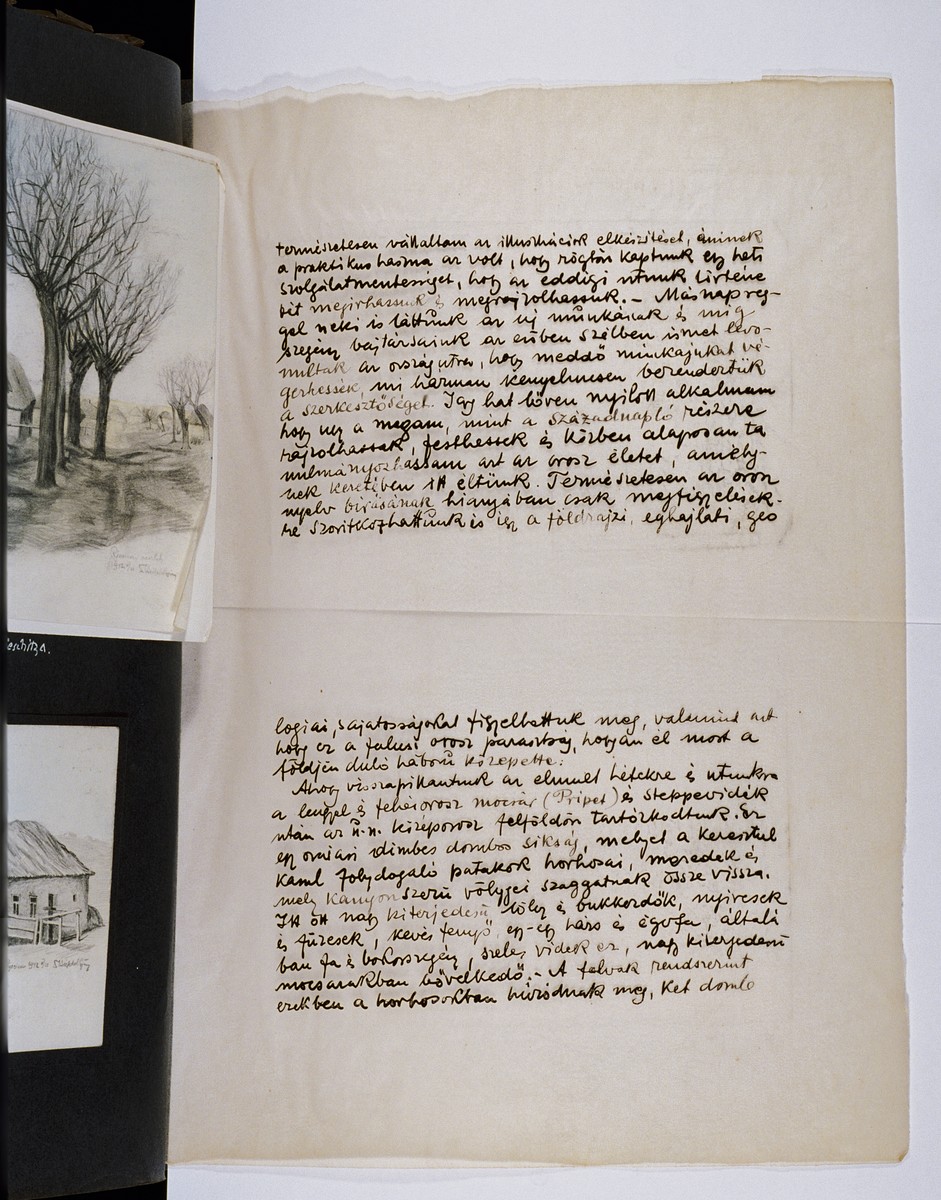 természetesen vállaltam az illusztrációk elkészítését, aminek
a praktikus haszna az volt, hogy rögtön kaptunk egy heti
szolgálatmentességet, hogy az eddigi utunk történe
tét megirhassuk és megrajzolhassuk. — Másnap reg-
gel neki is láttunk az uj munkának és mig
szegény bajtársaink az esőben szélben ismet levo-
nultak az országutra, hogy meddő munkájukat vé-
gezhessék, mi hárman kényelmesen berendeztük
a szerkesztőséget. Igy hát bőven nyilott alkalmam
hogy ugy a magam, mint a Századnapló részére
rajzolhassak, festhessek és közben alaposan ta
nulmányozhassam azt az orosz életet, amely-
nek keretében itt éltünk. Természetesen az orosz
nyelv birásának hiányában csak megfigyelések-
re szoritkozhattunk és igy a földrajzi, éghajlati, geo
logiai, sajátosságokat figyelhettük meg, valamint azt
hogy ez a falusi orosz parasztság, hogyan él most a
földjén duló háború közepette.
Ahogy visszapillantunk az elmult hetekre és utunkra
a lengyel és fehérorosz mocsár (Pripet) és steppevidék
után az u.n. középorosz felföldön tartózkodtunk. Ez
egy óriási dimbes dombos sikság, melyet a keresztül
kasul folydogáló patakok horhosai, meredek és
mély kanyonszerü völgyei szaggatnak össze vissza.
Itt ott nagy kiterjedésü tölgy és bükkerdők, nyiresek
és füzesek, kevés fenyő, egy-egy hárs és égerfa, általá
ban fa és bokorszegény, szeles vidék ez, nagy kiterjedésü
mocsarakban bővelkedő. — A falvak rendszerint
ezekben a horhosokban húzódnak meg, két domb